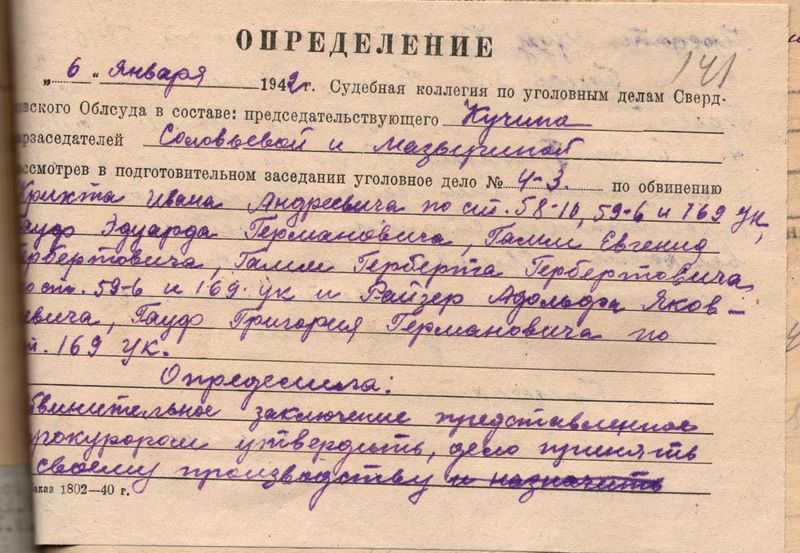 ОПРЕДЕЛЕНИЕ
141
„6" января 1942 г. Судебная коллегия по уголовным делам Сверд-
овского Облсуда в составе: председательствующего Кучина
арзаседателей Соловьевой и
ассмотрев в подготовительном заседания уголовное дело № 4-3 по обвинению
Крихта Ивана Андреевича по ст. 58-10, 59-6 и 169 УК,
ауф Эдуарда Германовича, Галли Евгения
ербертовича, Галли Герберта Гербертовича
о ст. 59-6 и 169 УК и Райзер Адольфа Яков-
евича, Гауф Григория Германовича по
т. 169 УК.
Определила:
бвинительное заключение представленное
рокурором утвердить, дело принять
своему производству и назначить
аказ 1802—40 г.